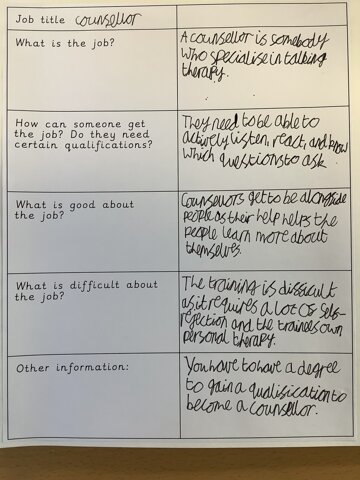 Job title counsellor
What is the job?
A counsellor is somebody
who specialise in talking
therapy.
How can someone get
the job? Do they need
certain qualifications?
They need to be able to
actively listen, react, and know
which questions to ask
What is good about
the job?
Counsellors get to be alongside
people as their help helps the
people learn more about
themselves.
What is difficult about
the job?
The training is difficult
as it requires a lot of self-
rejection and the trainees own
personal therapy.
Other information:
You have to have a degree
to gain a qualification to
become a counsellor.